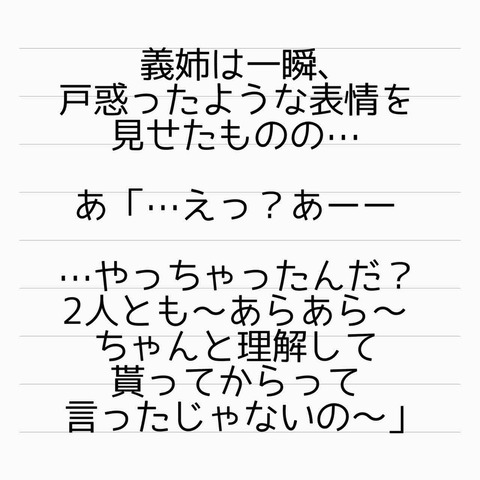 義姉は一瞬、
戸惑ったような表情を
見せたものの…
あ「…えっ？あーー
…やっちゃったんだ？
2人とも〜あらあら〜
ちゃんと理解して
貰ってからって
言ったじゃないの〜」